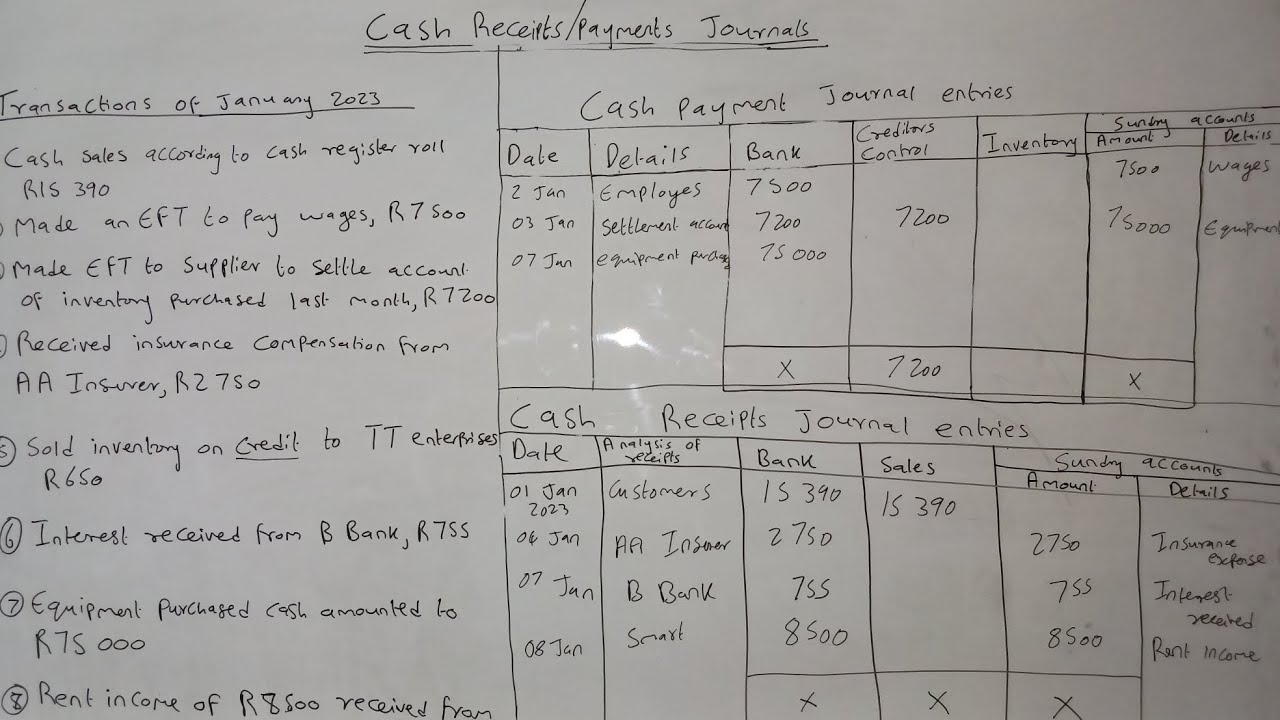 Cash Receipts/Payments Journals
Transactions of January 2023
Cash sales according to cash register roll
R15 390
Made an EFT to pay wages, R7 500
Made EFT to Supplier to settle account
of inventory purchased last month, R7200
Received insurance compensation from
AA Insurer, R2 750
5 Sold inventory on Credit to TT enterprises
R650
6 Interest received from B Bank, R755
7 Equipment purchased cash amounted to
R75 000
8 Rent income of R8500 received from
Cash Payment Journal entries
Sundry accounts
Date Details Bank Creditors Control Inventory Amount Details
2 Jan Employes 7500 7500 Wages
03 Jan Settlement account 7200 7200 75000 Equipment
07 Jan equipment 75 000
X 7200 X
Cash Receipts Journal entries
Date Analysis of receipts Bank Sales Sundry accounts
Amount Details
01 Jan 2023 Customers 15 390 15 390
04 Jan AA Insurer 2750 2750 Insurance expense
07 Jan B Bank 755 755 Interest received
08 Jan Smart 8500 8500 Rent income
X X X